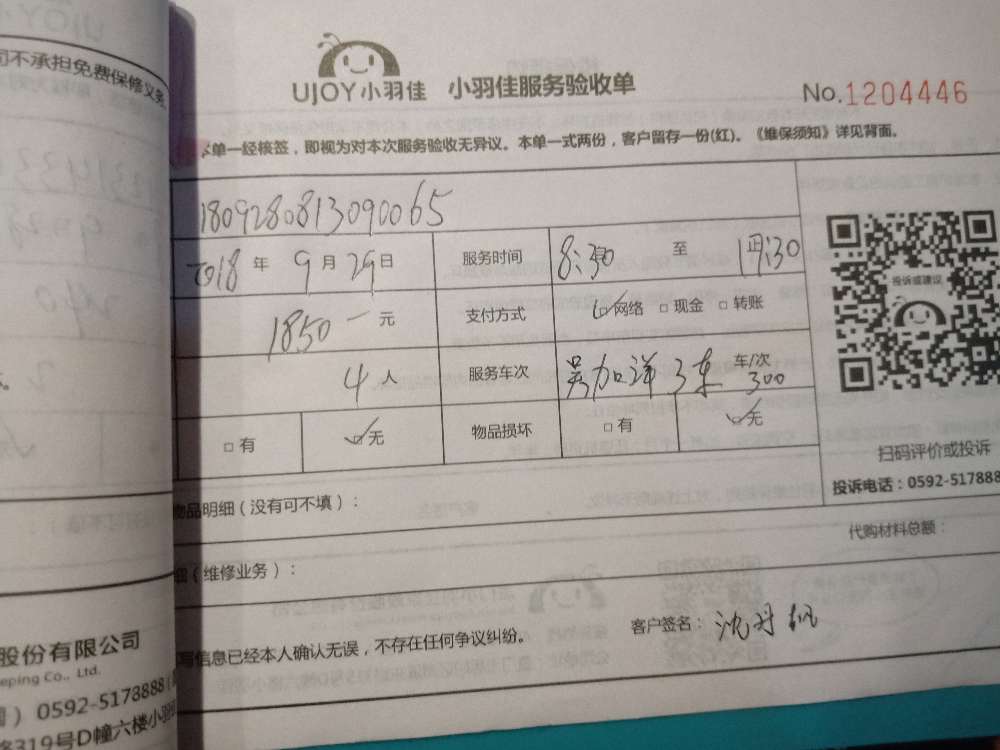 司不承担免费保修义务
UJOY小羽佳 小羽佳服务验收单
No.1204446
本单一经核签，即视为对本次服务验收无异议。本单一式两份，客户留存一份(红)。《维保须知》详见背面。
1809280813090065
2018年9月29日 服务时间 8:30 至
1850一元 支付方式 ☑网络 □现金 □转账
投诉或建议
4人 服务车次 吴加洋3车 车/次 300
□有 ☑无 物品损坏 □有 ☑无
扫码评价或投诉
投诉电话：0592-517888
物品明细（没有可不填）：
代购材料总额：
（维修业务）：
写信息已经本人确认无误，不存在任何争议纠纷。
客户签名：沈丹帆
股份有限公司
eping Co., Ltd.
0592-5178888
319号D幢六楼小羽